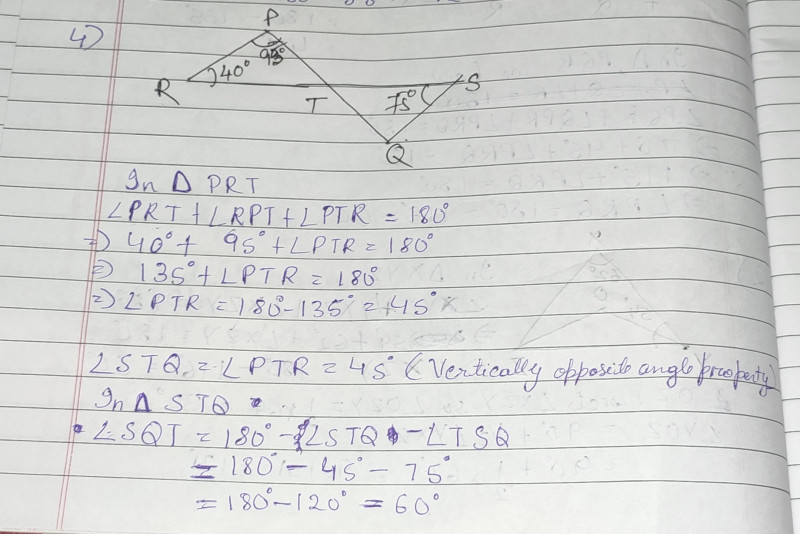 4)
P
95°
R
40°
T
75°
S
Q
In Δ PRT
∠PRT + ∠RPT + ∠PTR = 180°
=) 40° + 95° + ∠PTR = 180°
=) 135° + ∠PTR = 180°
=) ∠PTR = 180° - 135° = 45°
∠STQ = ∠PTR = 45° (Vertically opposite angle property)
In Δ STQ
∠SQT = 180° - ∠STQ - ∠TSQ
= 180° - 45° - 75°
= 180° - 120° = 60°